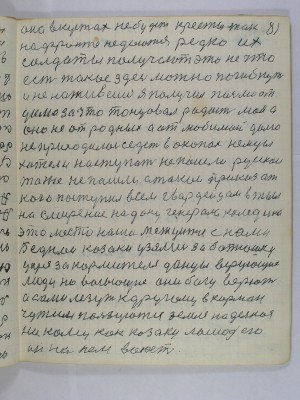 она в кустах не будет кресты тоже 8)
на фронте недаются редко их
солдаты получают это не что
ест такое здес можно погибнуть
и не нажившис Я получил писмо от
дома за это тонцовал радист мой а
оно не от родных а от любимой дамо
не приходило седят в окопах немцы
хотели наступат непошли руские
тоже не пошли а такой приказ от
кого поступил всем гвардейцам в тыл
на смирение на дону генерала
это место наша мстител с нами
бедной козаки узяли за батюшку
царя за кормителя донцы верующие
люди но воюющие они богу верют
а сами лезут к другому в карман
чужим ползуются земля надежная
ни кому как козаку ломод его
он на нем воюет.